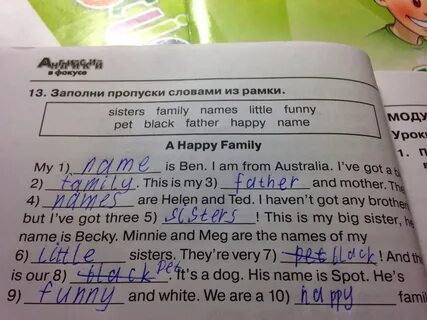 Английский
в фокусе
13. Заполни пропуски словами из рамки.
sisters family names little funny
pet black father happy name
A Happy Family
My 1) name is Ben. I am from Australia. I've got a
2) family. This is my 3) father and mother.
4) names are Helen and Ted. I haven't got any
but I've got three 5) sisters! This is my big sister,
name is Becky. Minnie and Meg are the names of my
6) little sisters. They're very 7) pet black! And
is our 8) black pet. It's a dog. His name is Spot. He's
9) funny and white. We are a 10) happy
МОДУ
Уроки
1. П